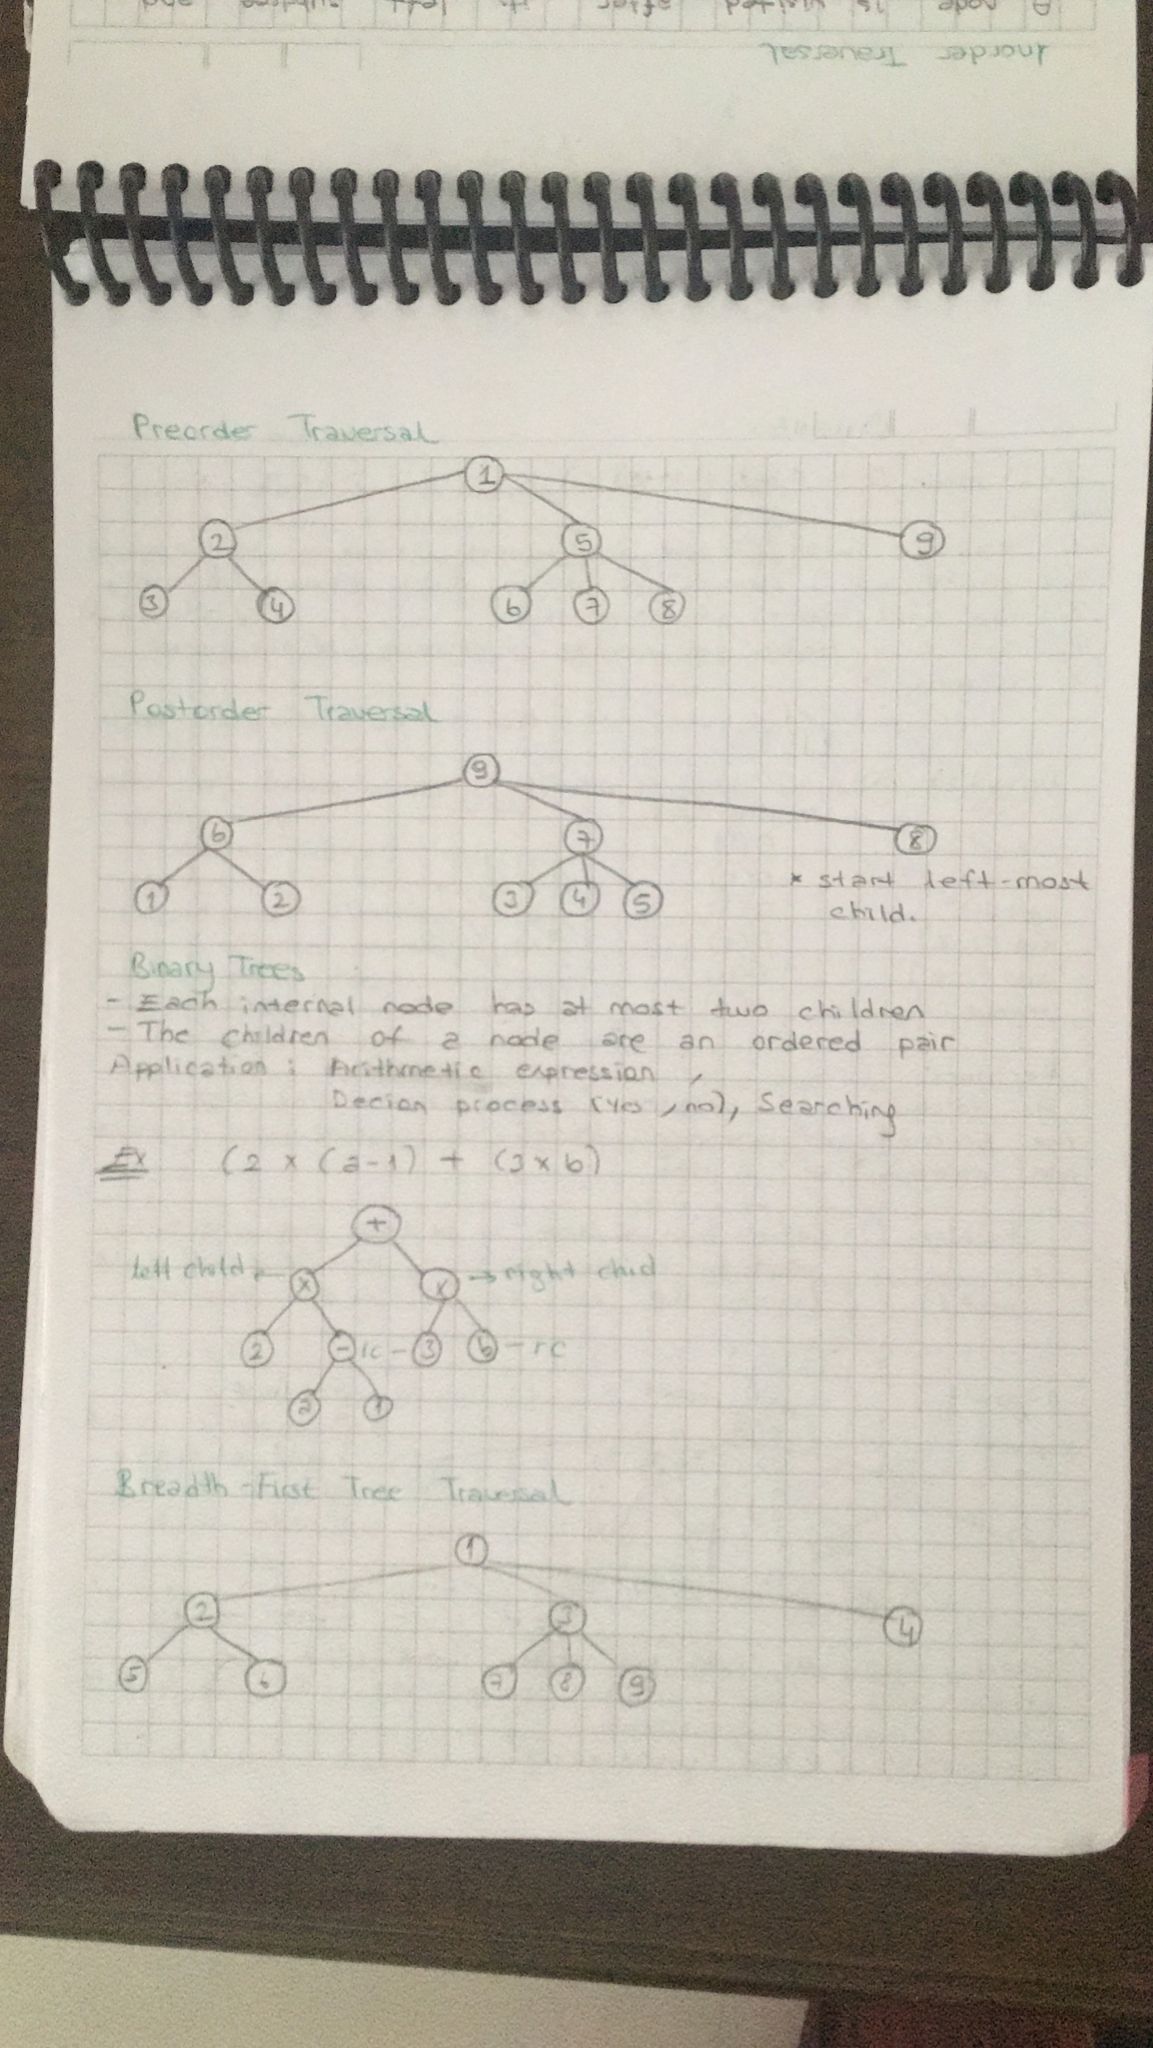 A node is visited after its left subtree and
Inorder Traversal
Preorder Traversal
1
2 5 9
3 4 6 7 8
Postorder Traversal
9
6 7 8
1 2 3 4 5
* start left-most
child.
Binary Trees
- Each internal node has at most two children
- The children of a node are an ordered pair
Application : Arithmetic expression ,
Decion process (yes , no), Searching
Ex (2 x (a-1) + (3 x b)
+
left child x x → right chid
2 - lc - 3 b - rc
a 1
Breadth-First Tree Traversal
1
2 3 4
5 6 7 8 9